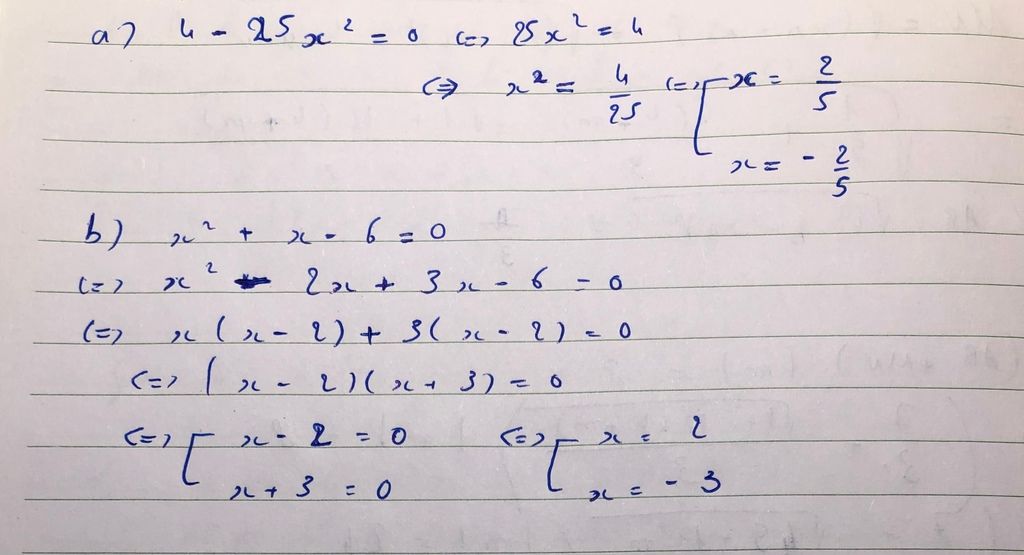 a) 4 - 25x² = 0 <=> 25x² = 4
<=> x² = 4/25 <=> [ x = 2/5
x = - 2/5
b) x² + x - 6 = 0
<=> x² - 2x + 3x - 6 = 0
<=> x(x - 2) + 3(x - 2) = 0
<=> (x - 2)(x + 3) = 0
<=> [ x - 2 = 0 <=> [ x = 2
x + 3 = 0 x = - 3